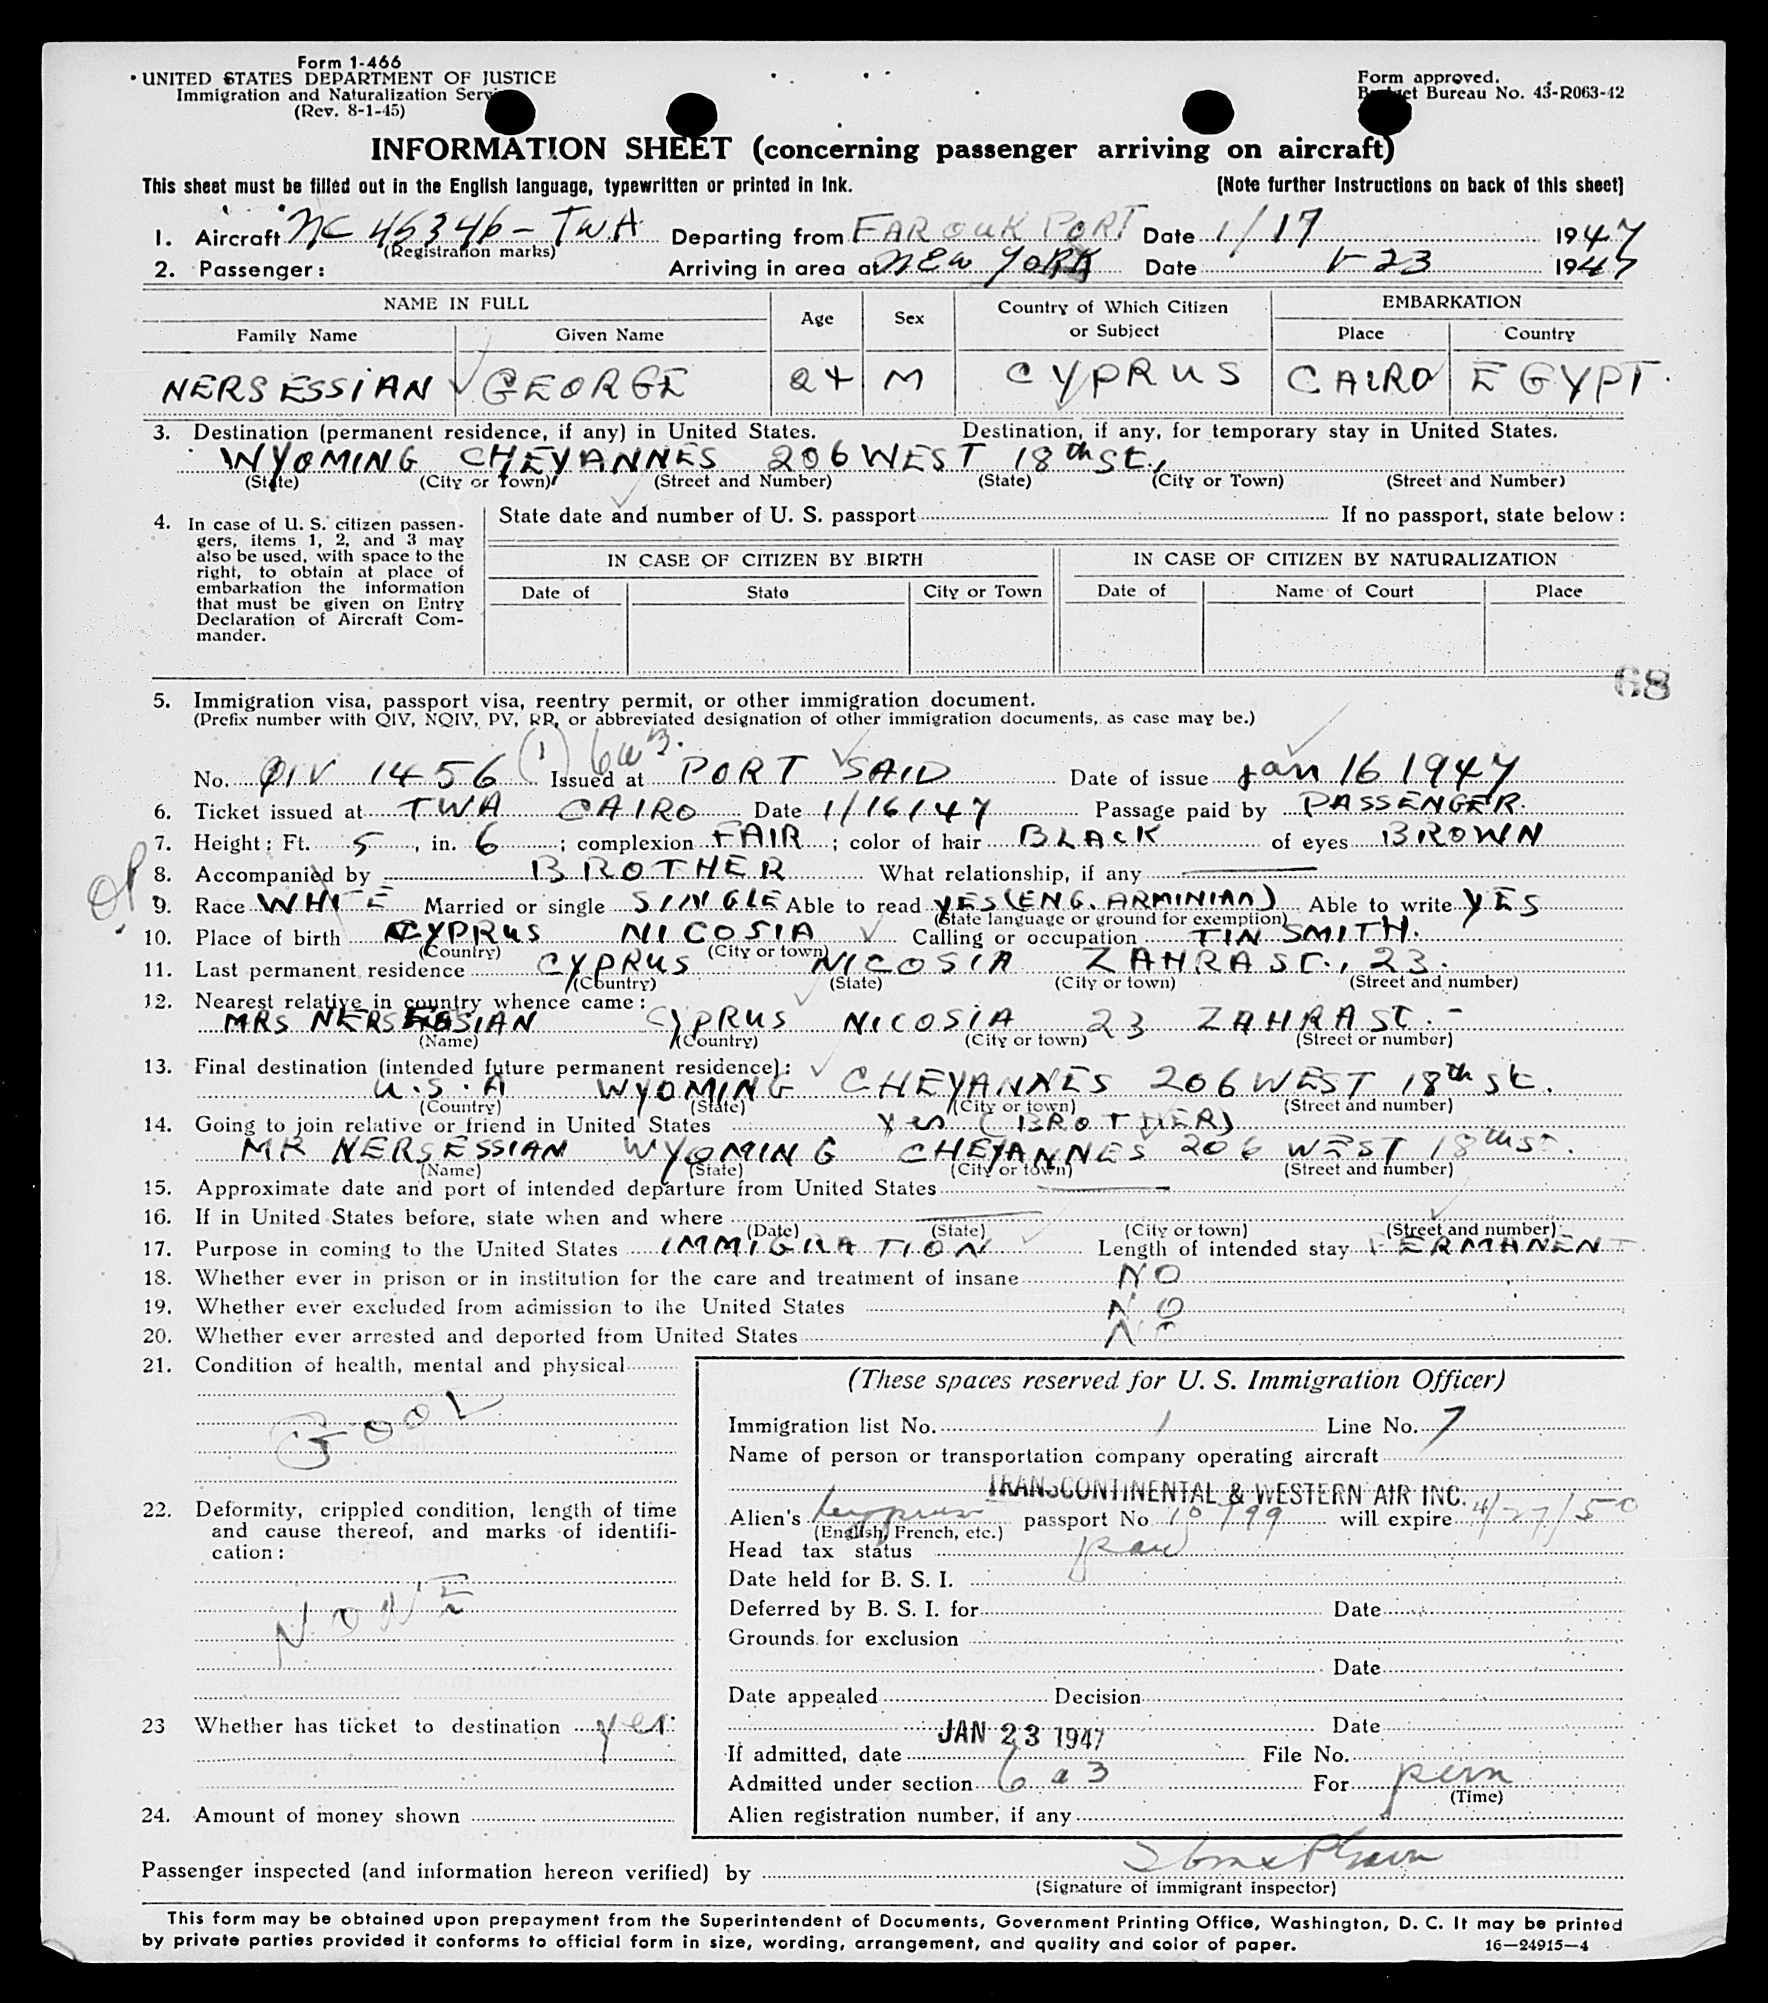 Form 1-466
UNITED STATES DEPARTMENT OF JUSTICE
Immigration and Naturalization
(Rev. 8-1-45)
Form approved.
Bureau No. 43-R063-42
INFORMATION SHEET (concerning passenger arriving on aircraft)
This sheet must be filled out in the English language, typewritten or printed in ink. [Note further instructions on back of this sheet]
1. Aircraft NC 45346 - TWA Departing from FAROUK PORT Date 1/17 1947
(Registration marks)
2. Passenger: Arriving in area at NEW YORK Date 1-23 1947
NAME IN FULL Age Sex Country of Which Citizen or Subject EMBARKATION
Family Name Given Name Place Country
NERSESSIAN GEORGE 24 M CYPRUS CAIRO EGYPT.
3. Destination (permanent residence, if any) in United States. Destination, if any, for temporary stay in United States.
WYOMING CHEYANNES 206 WEST 18th St.,
(State) (City or Town) (Street and Number) (State) (City or Town) (Street and Number)
4. In case of U. S. citizen passengers, items 1, 2, and 3 may also be used, with space to the right, to obtain at place of embarkation the information that must be given on Entry Declaration of Aircraft Commander.
State date and number of U. S. passport If no passport, state below:
IN CASE OF CITIZEN BY BIRTH IN CASE OF CITIZEN BY NATURALIZATION
Date of State City or Town Date of Name of Court Place
68
5. Immigration visa, passport visa, reentry permit, or other immigration document.
(Prefix number with QIV, NQIV, PV, RP, or abbreviated designation of other immigration documents, as case may be.)
(1) 6a3.
No. QIV 1456 Issued at PORT SAID Date of issue Jan 16 1947
6. Ticket issued at TWA CAIRO Date 1/16/47 Passage paid by PASSENGER.
7. Height: Ft. 5, in. 6; complexion FAIR; color of hair BLACK of eyes BROWN
8. Accompanied by BROTHER What relationship, if any
9. Race WHITE Married or single SINGLE Able to read YES (ENG. ARMINIAN) Able to write YES
(State language or ground for exemption)
10. Place of birth CYPRUS NICOSIA Calling or occupation TIN SMITH.
(Country) (City or town)
11. Last permanent residence CYPRUS NICOSIA ZAHRA ST., 23.
(Country) (State) (City or town) (Street and number)
12. Nearest relative in country whence came:
MRS NERSESSIAN CYPRUS NICOSIA 23 ZAHRA ST. -
(Name) (Country) (City or town) (Street or number)
13. Final destination (intended future permanent residence):
U.S.A WYOMING CHEYANNES 206 WEST 18th St.
(Country) (State) (City or town) (Street and number)
14. Going to join relative or friend in United States Yes (BROTHER)
MR NERSESSIAN WYOMING CHEYANNES 206 WEST 18th ST.
(Name) (State) (City or town) (Street and number)
15. Approximate date and port of intended departure from United States
16. If in United States before, state when and where
(Date) (State) (City or town) (Street and number)
17. Purpose in coming to the United States IMMIGRATION Length of intended stay PERMANENT
18. Whether ever in prison or in institution for the care and treatment of insane NO
19. Whether ever excluded from admission to the United States NO
20. Whether ever arrested and deported from United States NO
21. Condition of health, mental and physical
GOOD
22. Deformity, crippled condition, length of time and cause thereof, and marks of identification:
NONE
23 Whether has ticket to destination yes
24. Amount of money shown
(These spaces reserved for U. S. Immigration Officer)
Immigration list No. 1 Line No. 7
Name of person or transportation company operating aircraft
TRANSCONTINENTAL & WESTERN AIR INC.
Alien's Cyprus passport No will expire 4/27/50
(English, French, etc.)
Head tax status
Date held for B. S. I.
Deferred by B. S. I. for Date
Grounds for exclusion
Date
Date appealed Decision
Date
JAN 23 1947
If admitted, date File No.
Admitted under section 6 a 3 For perm
(Time)
Alien registration number, if any
Passenger inspected (and information hereon verified) by
(Signature of immigrant inspector)
This form may be obtained upon prepayment from the Superintendent of Documents, Government Printing Office, Washington, D. C. It may be printed
by private parties provided it conforms to official form in size, wording, arrangement, and quality and color of paper. 16—24915-4